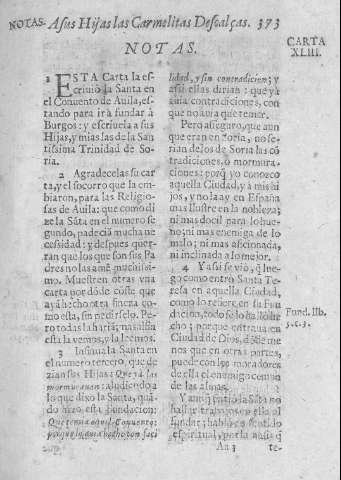 NOTAS. A sus Hijas las Carmelitas Descalças. 373
NOTAS.
CARTA
XLIII.
1 ESTA Carta la es-
criuiò la Santa en
el Conuento de Auila, es-
tando para ir à fundar à
Burgos: y escriuela a sus
Hijas, y mias las de la San-
tissima Trinidad de So-
ria.
2 Agradecelas su car-
ta, y el socorro que la em-
biaron, para las Religio-
sas de Auila: que como di-
ze la Sãta en el numero se-
gundo, padeciã mucha ne-
cessidad: y despues quer-
ran que los que son sus Pa-
dres no las amẽ muchissi-
mo. Muestren otras vna
carta por dõde coste que
aya hecho otra fineza co-
mo esta, sin pedirselo. Pe-
ro todas la harã; mas assi
esta la vemos, y la leemos.
3 Insinua la Santa en
el numero tercero, que de-
zian sus Hijas: Que ya las
murmurauan: aludiendo a
lo que dixo la Santa, quã-
do hizo esta fundacion:
Que tenia aquel Conuento;
porque se auia hecho con faci
lidad, y sin contradicion; y
assi ellas dirian: que ya
auia contradiciones, con
que no aura que temer.
Pero asseguro, que aun
que eran en Soria, no se-
rian de los de Soria las cõ
tradiciones, ò mormura-
ciones: porq̃ yo conozco
aquella Ciudad, y à mis hi
jos, y no la ay en España
mas ilustre en la nobleza;
ni mas docil para lo bue-
no; ni mas enemiga de lo
malo; ni mas aficionada,
ni inclinada a lo mejor.
4 Y assi se viò, q̃ lue-
go como entrò Santa Te-
resa en aquella Ciudad,
como lo refiere en su Fun
dacion, todo se lo hallò he
cho; porque estraua en
Ciudad de Dios, dõde me
nos que en otras partes,
puede con los moradores
de ella el enemigo comun
de las almas.
Fund. lib.
5. c. 3.
5 Y aunq̃ sintiò la Sãta no
hallar trabajos en ella al
fundar; hablò en sentido
espiritual, por la ansia q̃
Aa 3 te-